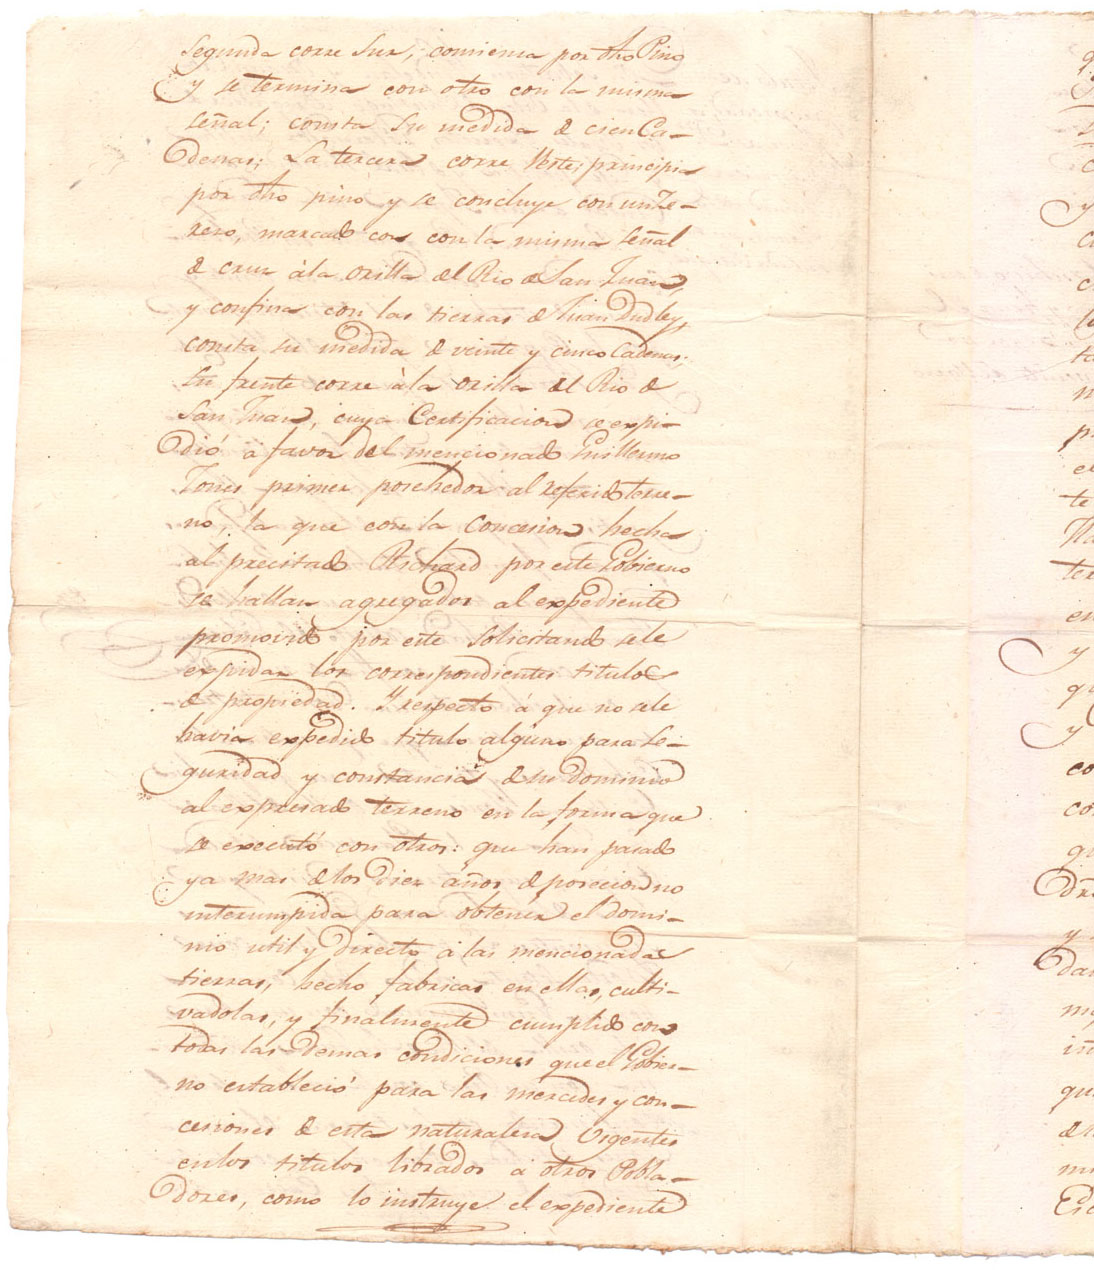 Segunda corre Sur, comiensa por dho Pino
y se termina con otro con la misma
señal; consta su medida de cien Ca-
denas; La tercera corre Veste; principia
por dho pino y se concluye con un Te-
rero, marcado con con la misma señal
de cruz à la orilla del Rio de San Juan,
y confina con las tierras de Juan Dudley,
consta su medida de veinte y cinco Cadenas;
su frente corre à la orilla del Rio de
San Juan, cuya Certificacion se expi-
dió a favor del mencionado Guillermo
Jones primer posehedor al referido terre-
no, la que con la Concesion hecha
al precitado Richard por este Gobierno
se hallan agregados al expediente
promovido por este solicitando se le
expidan los correspondientes titulos
de propiedad. Y respecto á que no se le
havia expedido titulo alguno para Se-
guridad y constancia de su dominio
al expresado terreno en la forma que
se executó con otros: que han pasado
ya mas de los Diez años de posecion no
interumpida para obtener el domi-
nio util y directo à las mencionadas
tierras, hecho fabricas en ellas, culti-
vadolas, y finalmente cumplido con
todas las demas condiciones que el Gobier-
no estableció para las mercedes y con-
cesiones de esta naturaleza Vigentes
en los titulos librados a otros Pobla-
dores, como lo instruye el expediente